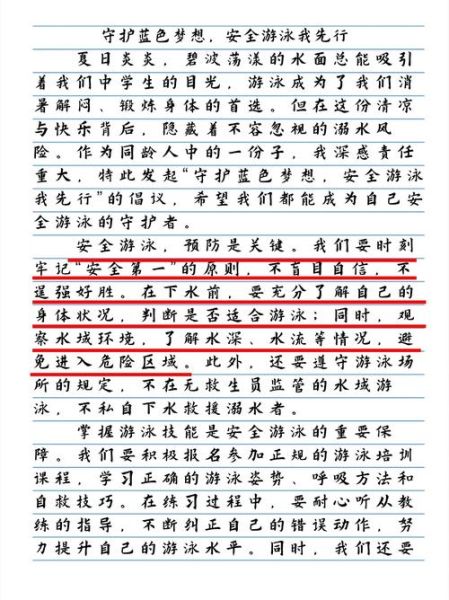 守护蓝色梦想，安全游泳我先行
夏日炎炎，碧波荡漾的水面总能吸引
着我们中学生的目光，游泳成为了我们消
暑解闷、锻炼身体的首选。但在这份清凉
与快乐背后，隐藏着不容忽视的溺水风
险。作为同龄人中的一份子，我深感责任
重大，特此发起“守护蓝色梦想，安全游泳
我先行”的倡议，希望我们都能成为自己安
全游泳的守护者。
安全游泳，预防是关键。我们要时刻
牢记“安全第一”的原则，不盲目自信，不
逞强好胜。在下水前，要充分了解自己的
身体状况，判断是否适合游泳；同时，观
察水域环境，了解水深、水流等情况，避
免进入危险区域。此外，还要遵守游泳场
所的规定，不在无救生员监管的水域游
泳，不私自下水救援溺水者。
掌握游泳技能是安全游泳的重要保
障。我们要积极报名参加正规的游泳培训
课程，学习正确的游泳姿势、呼吸方法和
自救技巧。在练习过程中，要耐心听从教
练的指导，不断纠正自己的错误动作，努
力提升自己的游泳水平。同时，我们还要